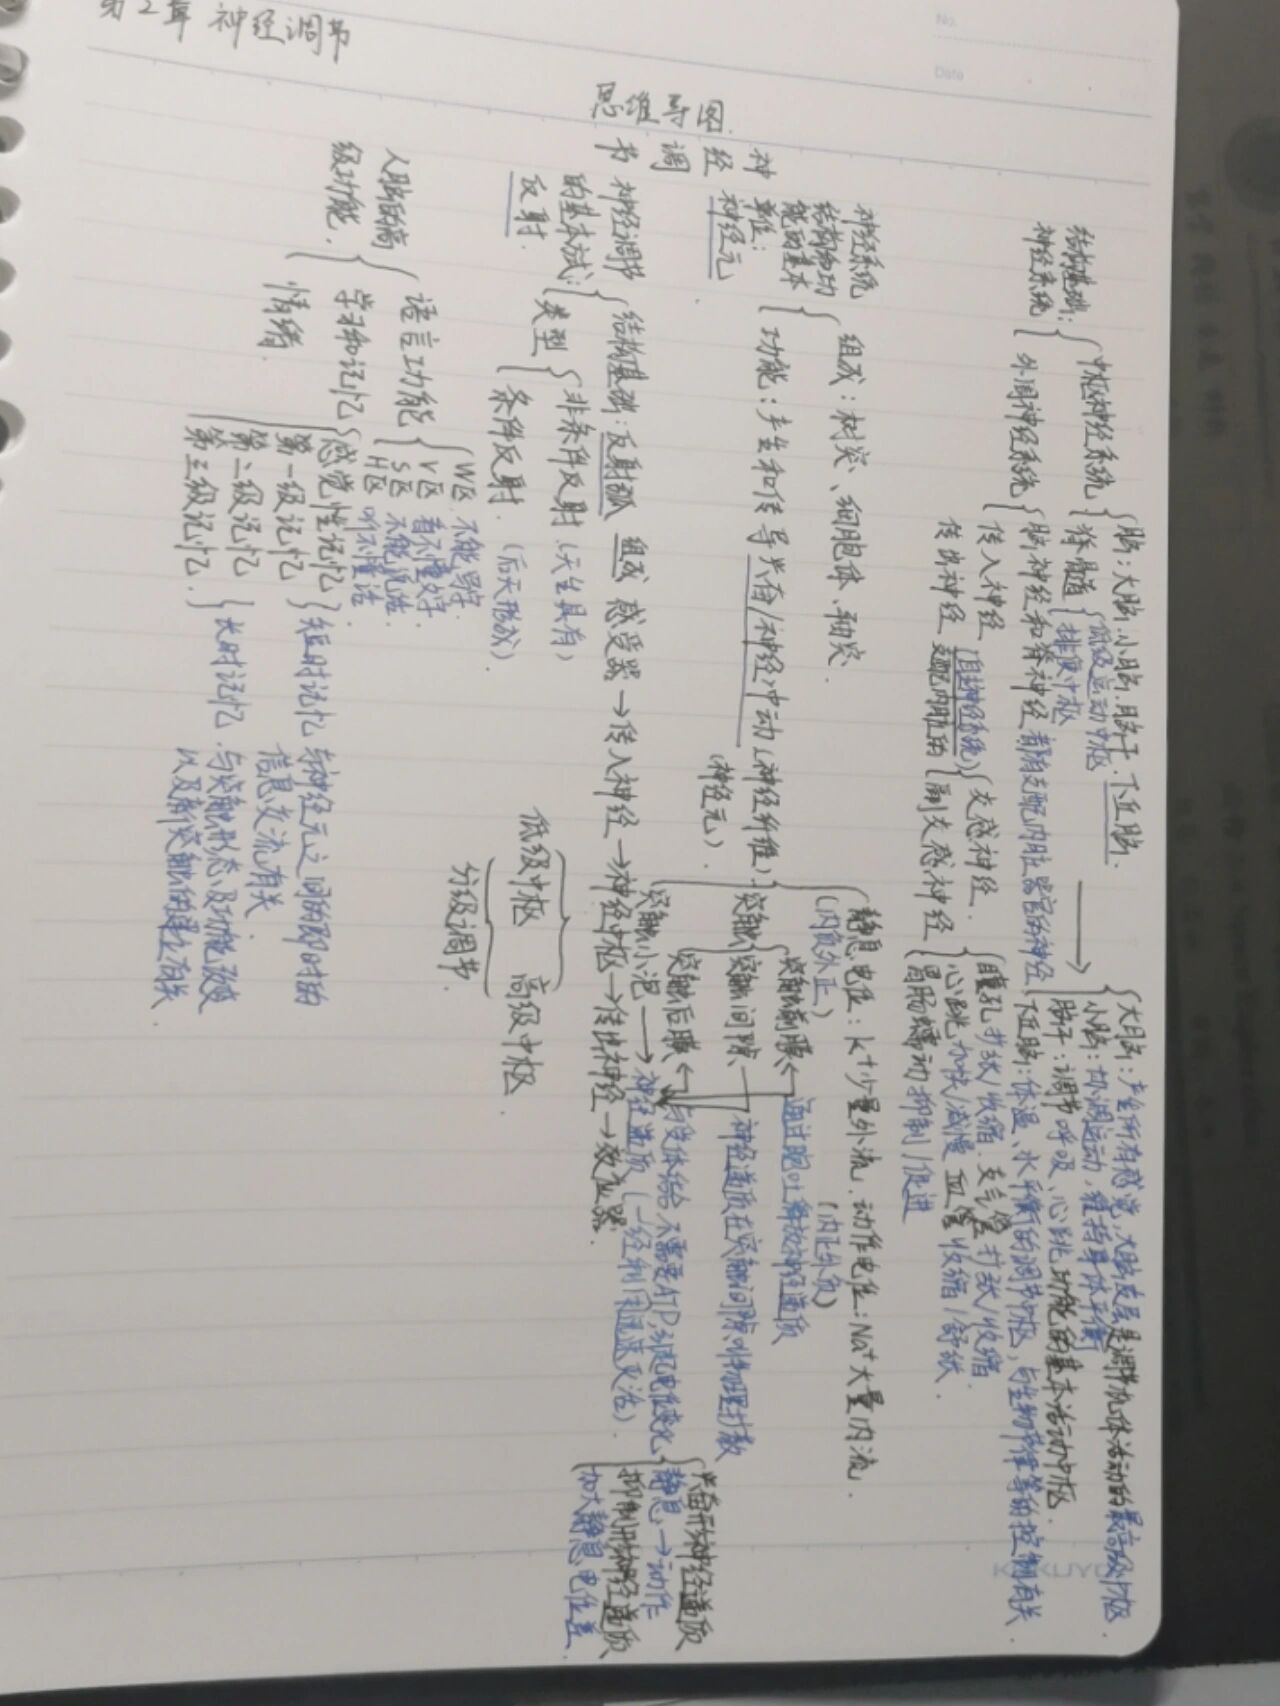 第2章 神经调节
思维导图
神经调节
结构基础:
神经系统
中枢神经系统
脑:大脑.小脑.脑干.下丘脑.
大脑:产生所有感觉,大脑皮层是调节机体活动的最高级中枢.
小脑:协调运动,维持身体平衡
脑干:调节呼吸、心跳功能的基本活动中枢.
下丘脑:体温、水平衡的调节中枢,与生物节律等的控制有关
脊髓
低级运动中枢
排便中枢
外周神经系统
脑神经和脊神经 都有支配内脏器官的神经
传入神经
传出神经
(自主神经系统)
支配内脏的
交感神经.
副交感神经
瞳孔扩张/收缩.支气管扩张/收缩.
心跳加快/减慢 血管收缩/舒张.
胃肠蠕动抑制/促进
神经系统
结构和功
能的基本
单位:
神经元
组成:树突、细胞体、轴突.
功能:产生和传导兴奋/神经冲动(神经纤维).
(神经元).
静息电位:K⁺少量外流.动作电位:Na⁺大量内流.
(内负外正)
(内正外负)
突触
突触前膜
通过胞吐释放神经递质
突触间隙
神经递质在突触间隙以物理扩散
突触后膜
与受体结合 不需要ATP,引起电位变化
兴奋形神经递质
静息→动作
抑制形神经递质
加大静息电位差
突触小泡→神经递质(一经利用迅速灭活).
神经调节
的基本方式:
反射.
结构基础:反射弧 组成 感受器→传入神经→神经中枢→传出神经→效应器.
低级中枢 高级中枢.
分级调节.
类型
非条件反射(天生具有)
条件反射.(后天形成).
人脑的高
级功能.
语言功能
W区.不能写字.
V区 看不懂文字.
S区 不能说话.
H区 听不懂话.
学习和记忆
感觉性记忆
第一级记忆
第二级记忆
第三级记忆.
短时记忆 与神经元之间的即时的
信息交流有关
长时记忆.与突触形态及功能改变
以及新突触的建立有关.
情绪.
No.
Date
KOKUYO